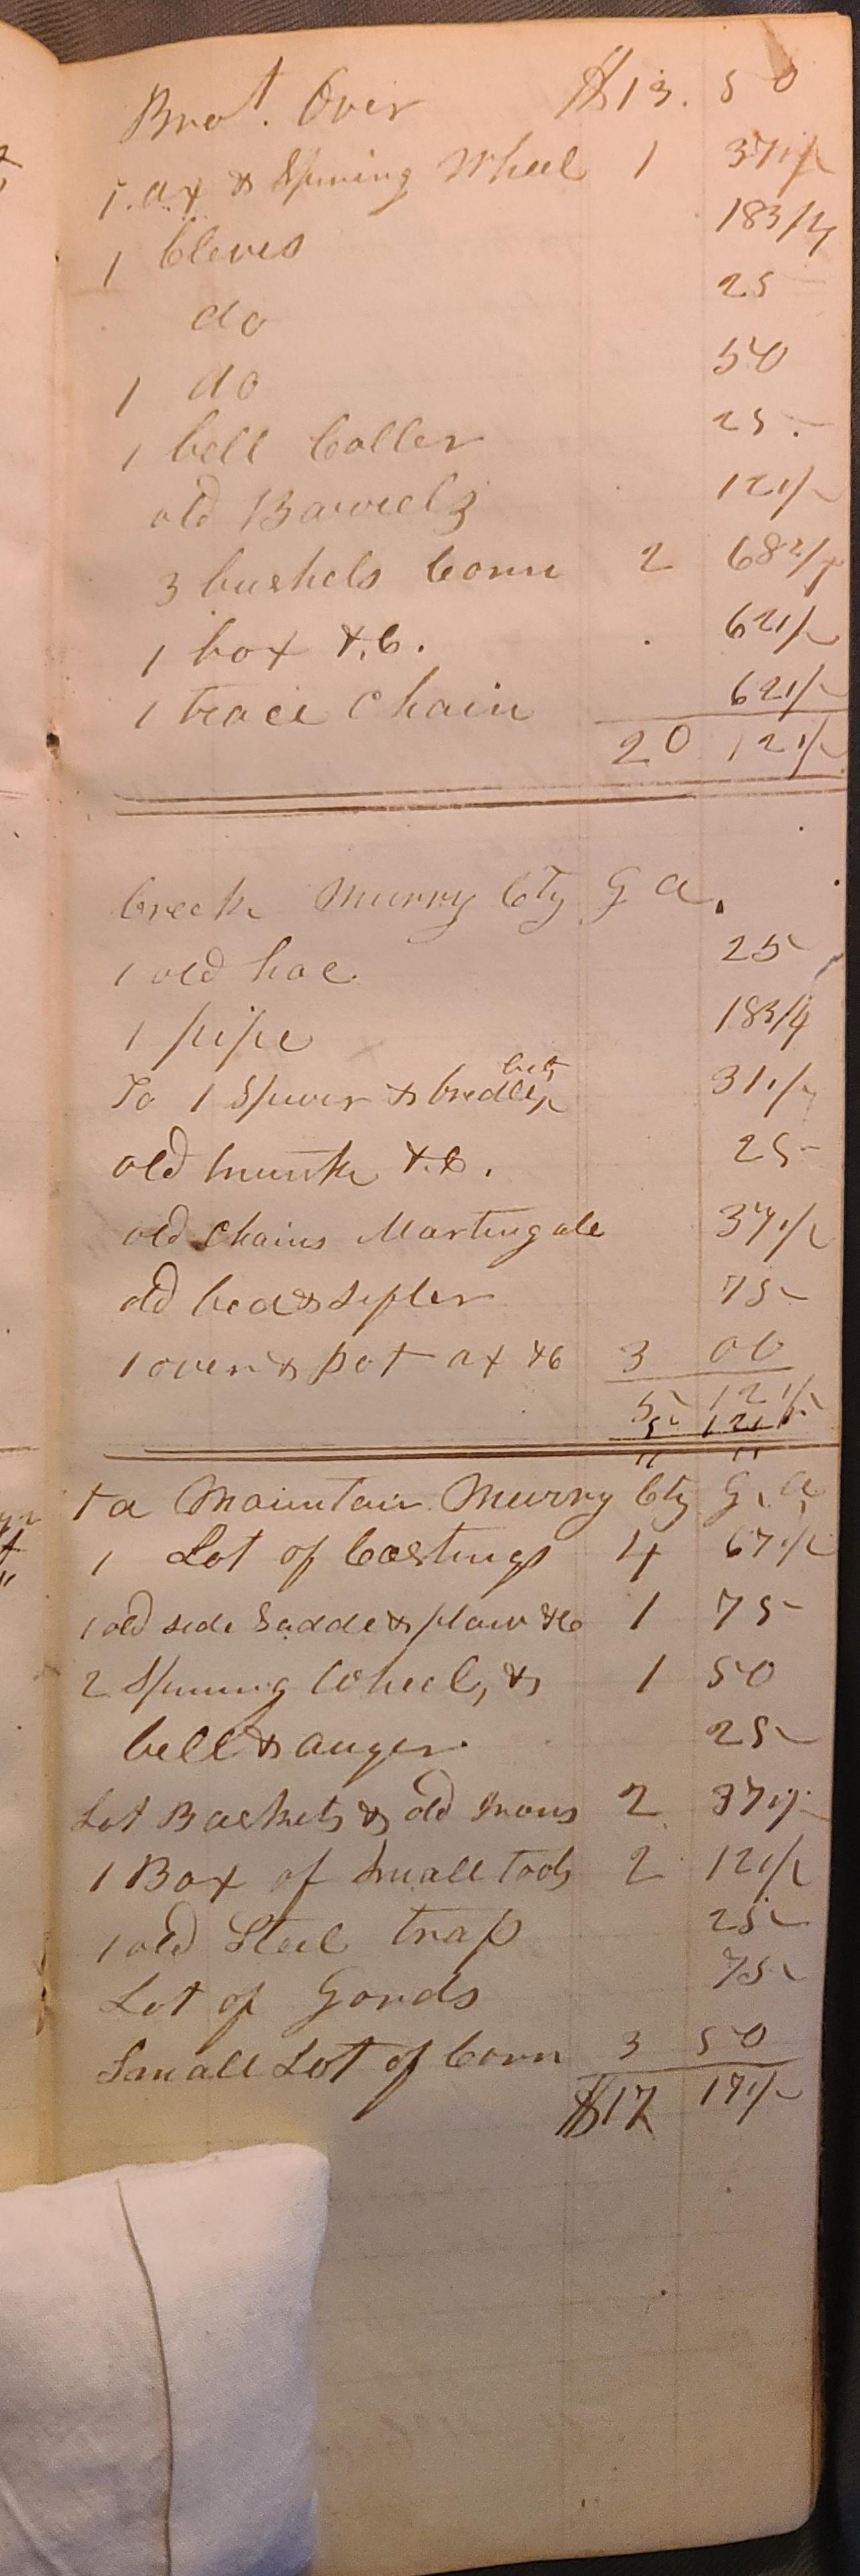 Brot. Over $13. 50
1. ax & Spining Wheel 1 37 1/2
1 Cleves 18 3/4
do 25
1 do 50
1 bell Coller 25
old Barrels 12 1/2
3 bushels Corn 2 68 2/4
1 box &.C. 62 1/2
1 trace Chain 62 1/2
20 12 1/2
Creek Murry Cty G a.
1 old hoe 25
1 pipe 18 3/4
To 1 Spur & bredle bits 31 1/4
old trunk &.C. 25
old Chains Martingale 37 1/2
old bed & sifter 75
1 oven & pot ax &C 3 00
5 12 1/2
5 12 1/2
" "
ta Mountain Murry Cty G. a
1 Lot of Castings 4 67 1/2
1 old side Saddle & plow &C 1 75
2 Spinning Wheel, & 1 50
bell & auger 25
Lot Baskets & old Irons 2 37 1/2
1 Box of Small Tools 2 12 1/2
1 old Steel trap 25
Lot of Gords 75
Small Lot of Corn 3 50
$17 17 1/2